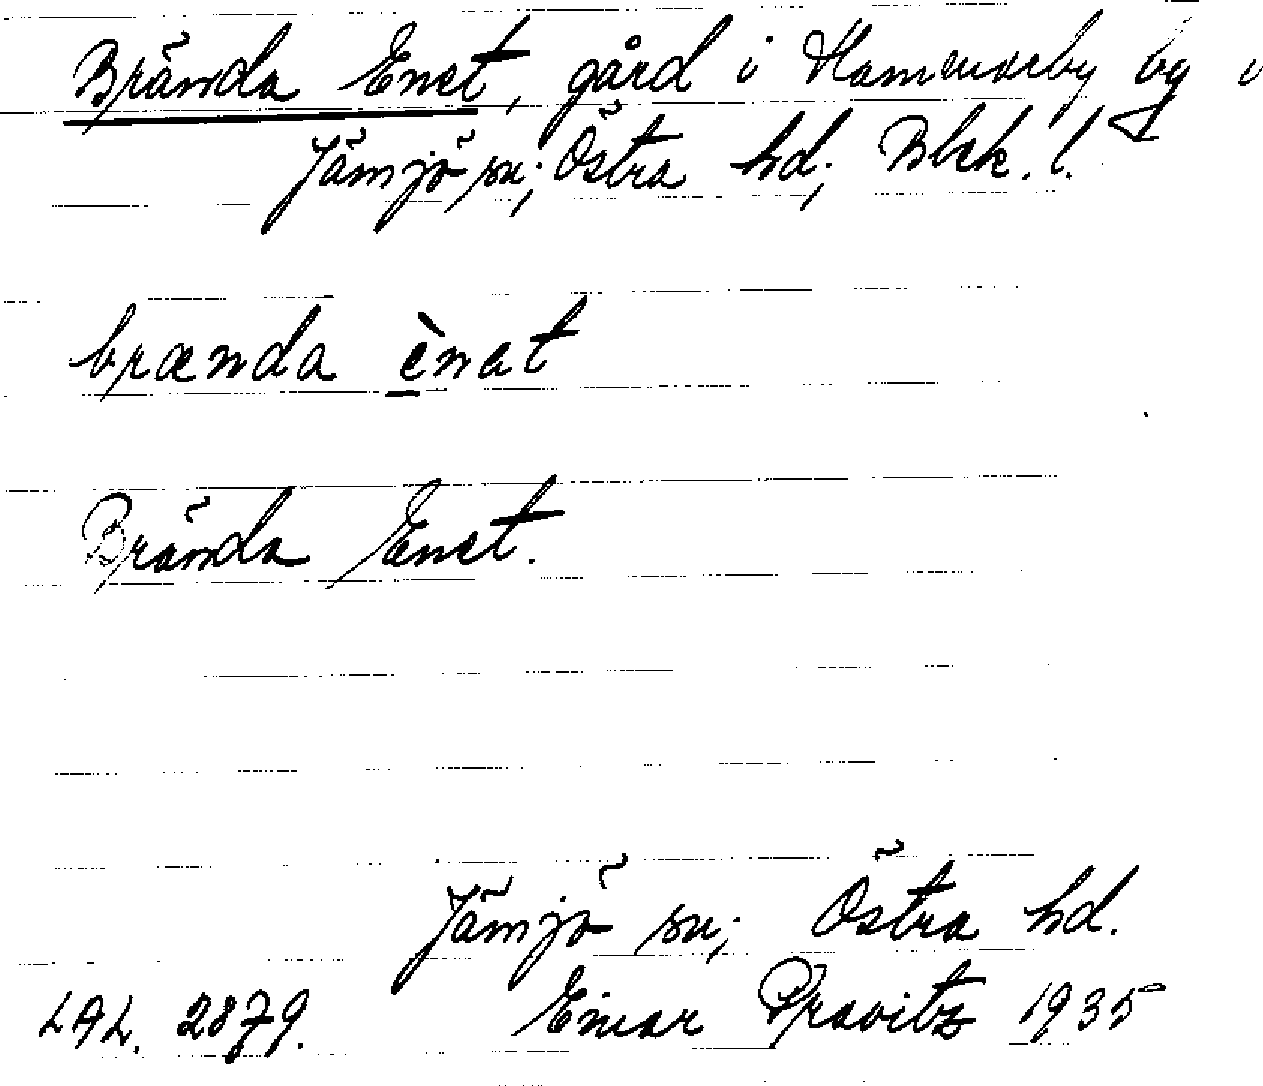 Brända Enet, gård i Hammarby by i
Jämjö sn; Östra hd; Blek. l.
brænda ènat
Brända Enet.
Jämjö sn; Östra hd.
LAL. 2879. Einar Pravitz 1935